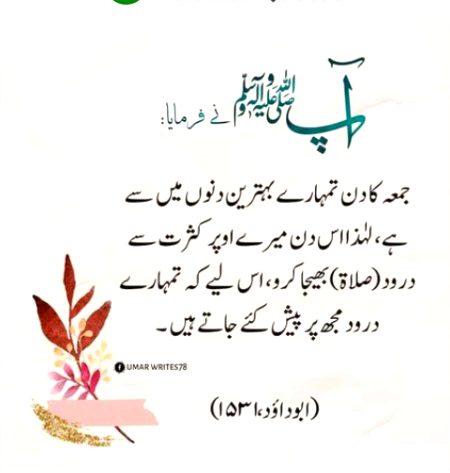 آپ صلی اللہ علیہ وآلہ وسلم نے فرمایا:
جمعہ کا دن تمہارے بہترین دنوں میں سے
ہے، لہٰذا اس دن میرے اوپر کثرت سے
درود (صلاۃ) بھیجا کرو، اس لیے کہ تمہارے
درود مجھ پر پیش کئے جاتے ہیں۔
UMAR WRITES78
(ابوداؤد، ۱۵۳۱)